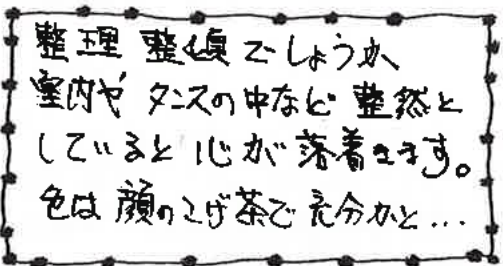 整理整頓でしょうか、
室内や タンスの中など 整然と
していると 心が 落着きます。
色は 顔のこげ茶で 充分かと…